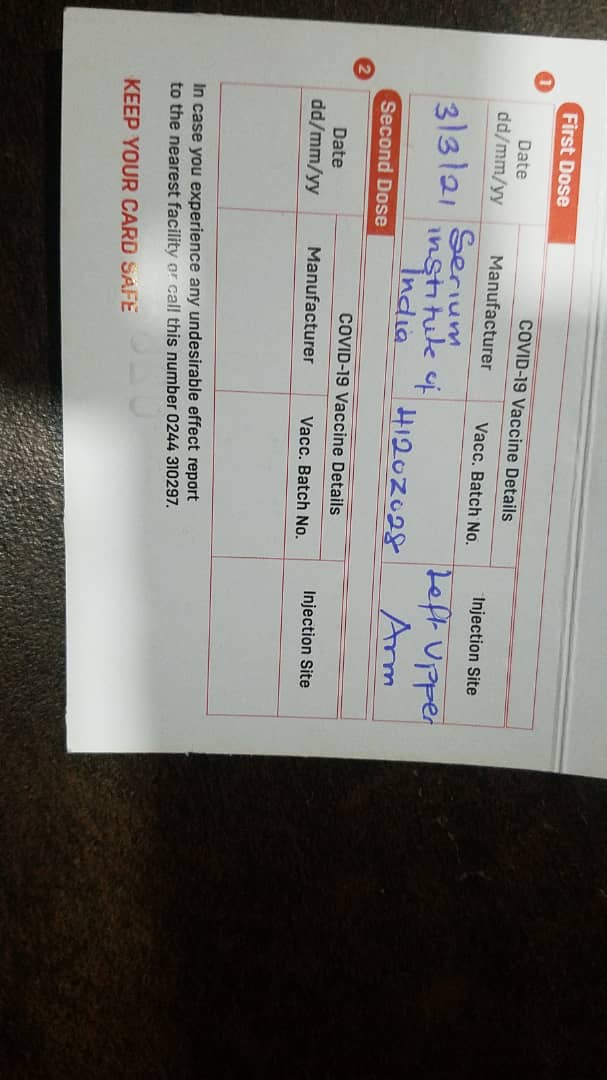 First Dose
1
Date
dd/mm/yy
COVID-19 Vaccine Details
Manufacturer
Vacc. Batch No.
Injection Site
3/3/21
Serium
institute of
India
4120Z028
Left Upper
Arm
2
Second Dose
Date
dd/mm/yy
COVID-19 Vaccine Details
Manufacturer
Vacc. Batch No.
Injection Site
In case you experience any undesirable effect report
to the nearest facility or call this number 0244 310297.
KEEP YOUR CARD SAFE